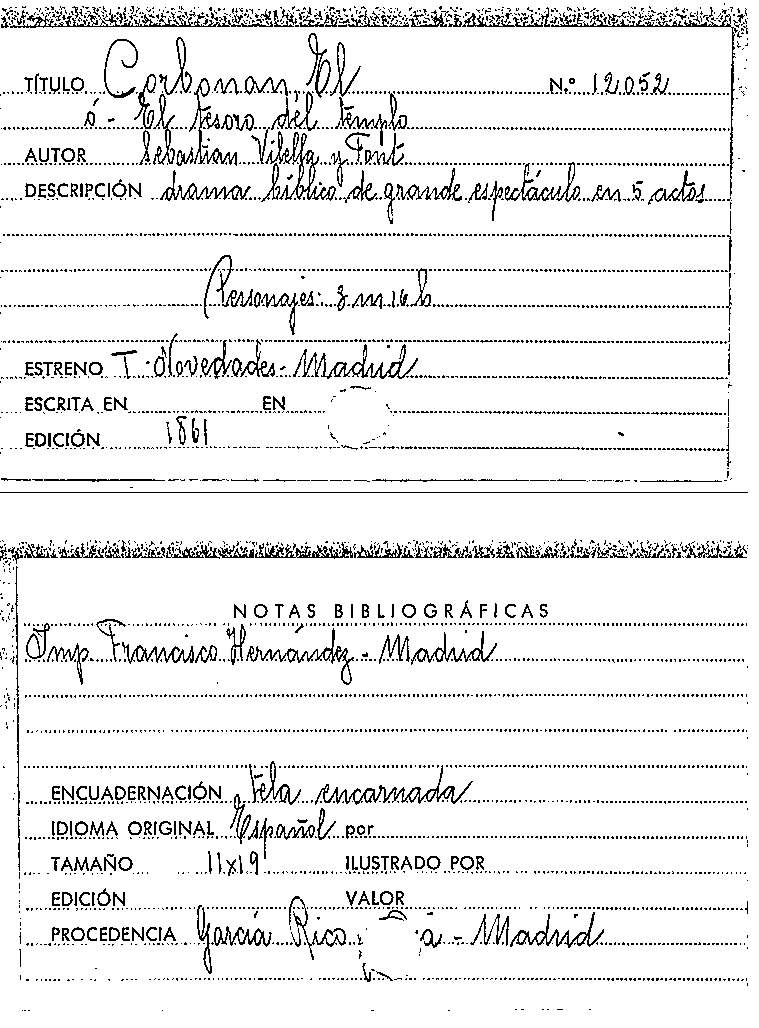 TÍTULO Corbonan, El N.º 12.052
ó - El tesoro del templo
AUTOR Sebastian Vilella y Font
DESCRIPCIÓN drama bíblico de grande espectáculo en 5 actos
Personajes: 3 m 16 h
ESTRENO T. Novedades - Madrid
ESCRITA EN EN
EDICIÓN 1861
NOTAS BIBLIOGRÁFICAS
Imp. Francisco Hernández - Madrid
ENCUADERNACIÓN tela encarnada
IDIOMA ORIGINAL Español por
TAMAÑO 11x19 ILUSTRADO POR
EDICIÓN VALOR
PROCEDENCIA García Rico - Madrid